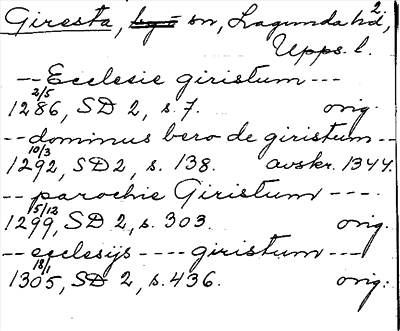 Giresta, sn, Lagunda hd,
Upps. l.
-- Ecclesie giristum ---
2/5
1286, SD 2, s. 7. orig.
-- dominus bero de giristum --
10/3
1292, SD 2, s. 138. avskr. 1344.
-- parochie Giristum ----
5/12
1299, SD 2, s. 303. orig.
-- ecclesijs ---- giristum ---
18/1
1305, SD 2, s. 436. orig.